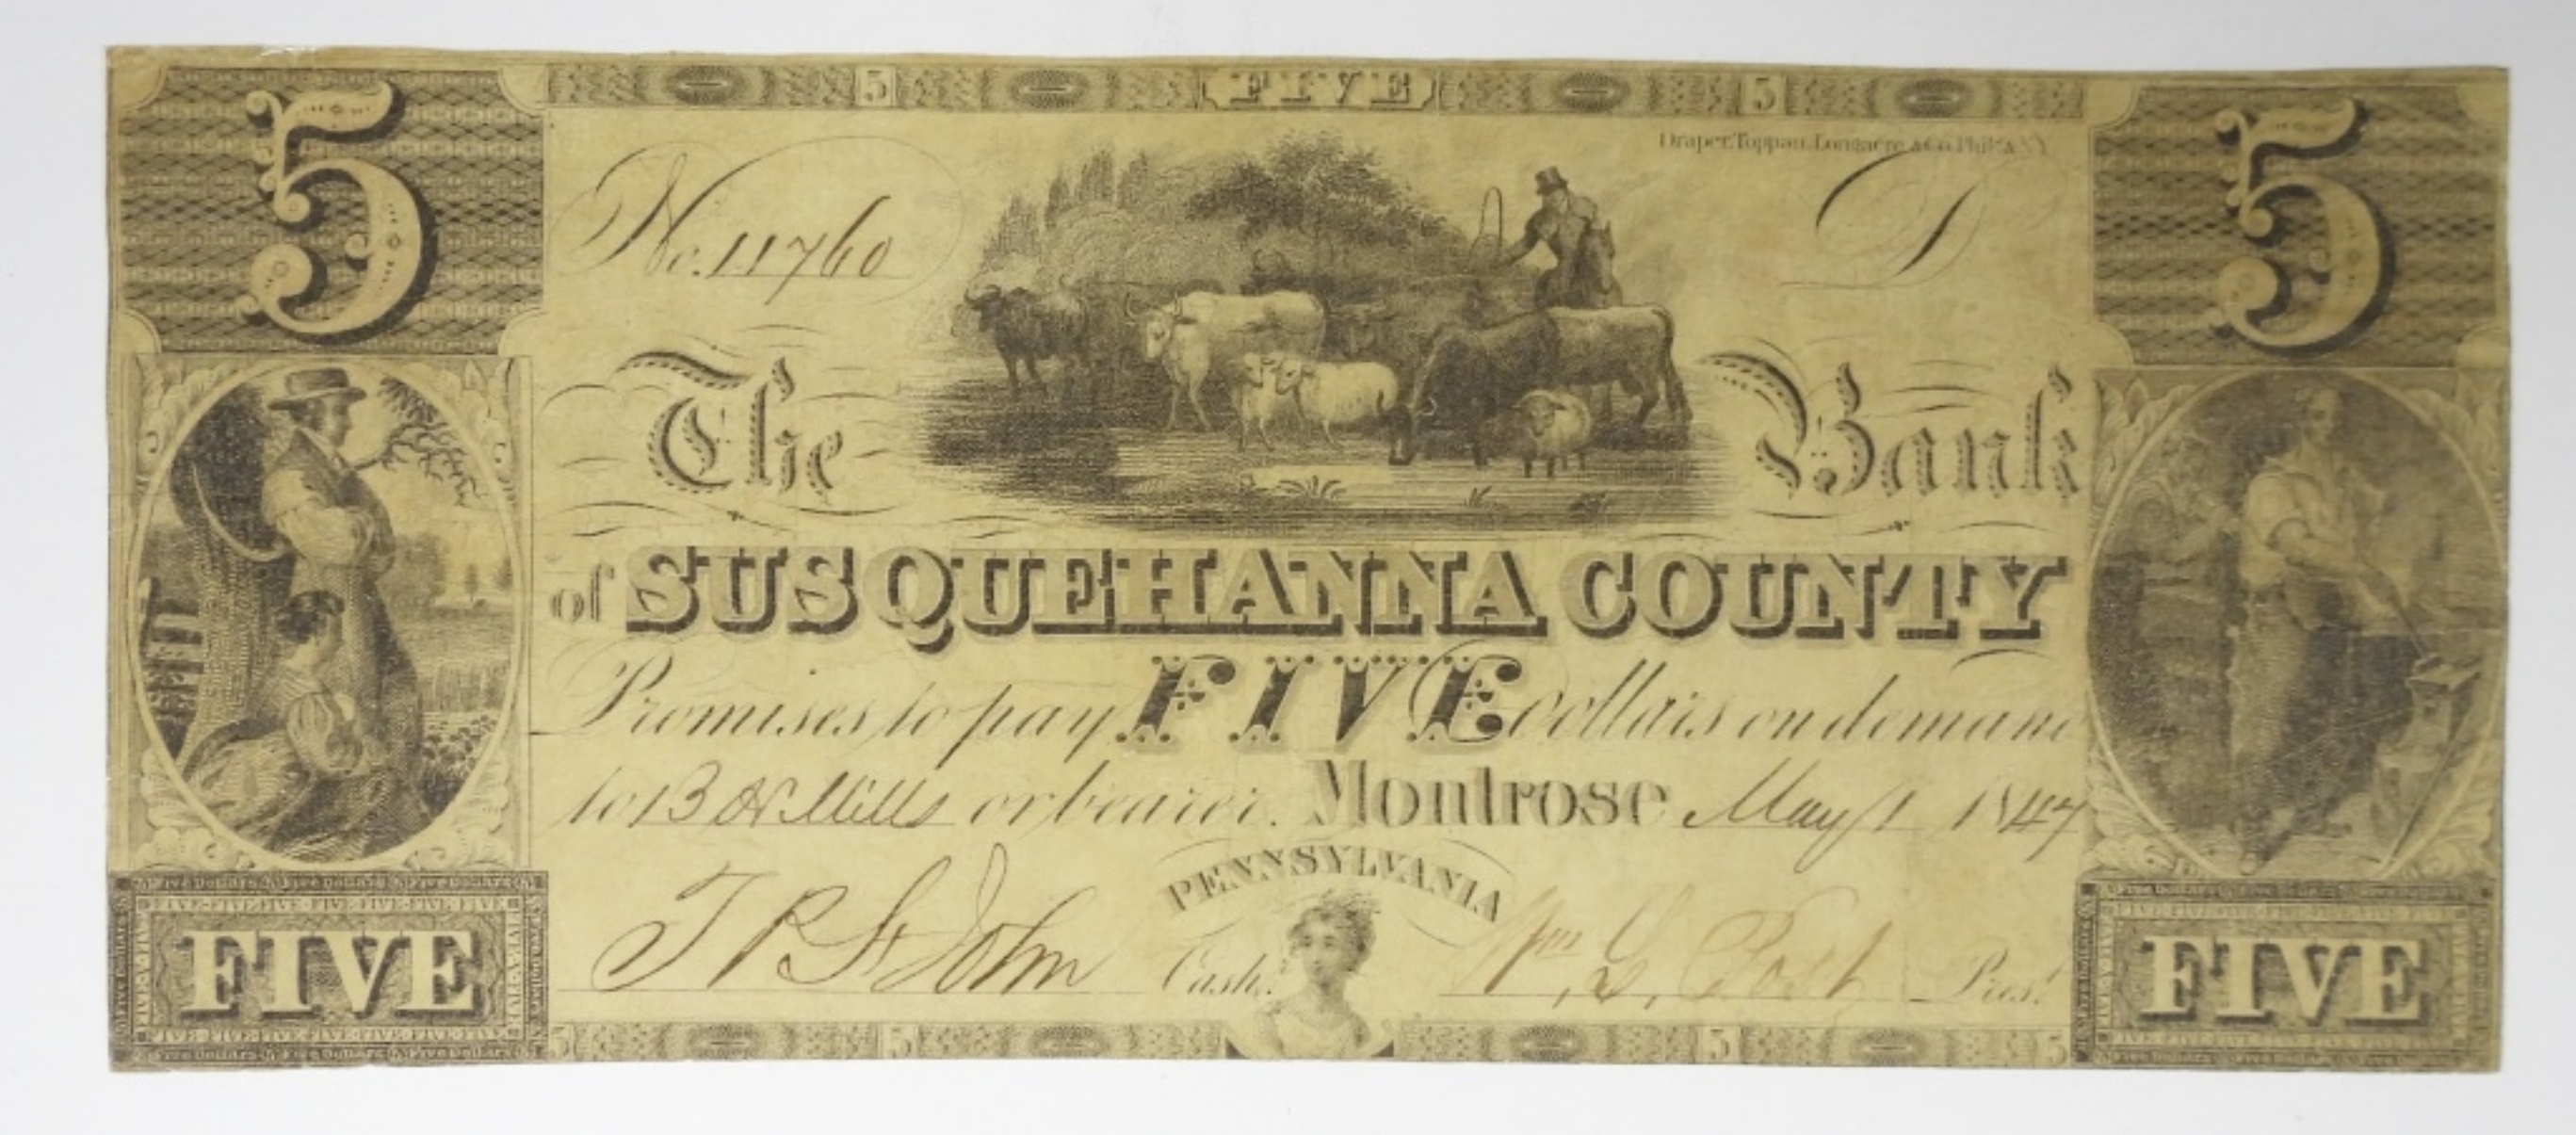 5 FIVE 5
5 5
Draper, Toppan, Longacre & Co. Phila. & N.Y.
No. 11760
The Bank
of SUSQUEHANNA COUNTY
Promises to pay FIVE dollars on demand
to B H Mills or bearer. Montrose May 1 1847
PENNSYLVANIA
T P St John Cash.r Wm. L. Post Pres.t
FIVE FIVE
5 5 5 5